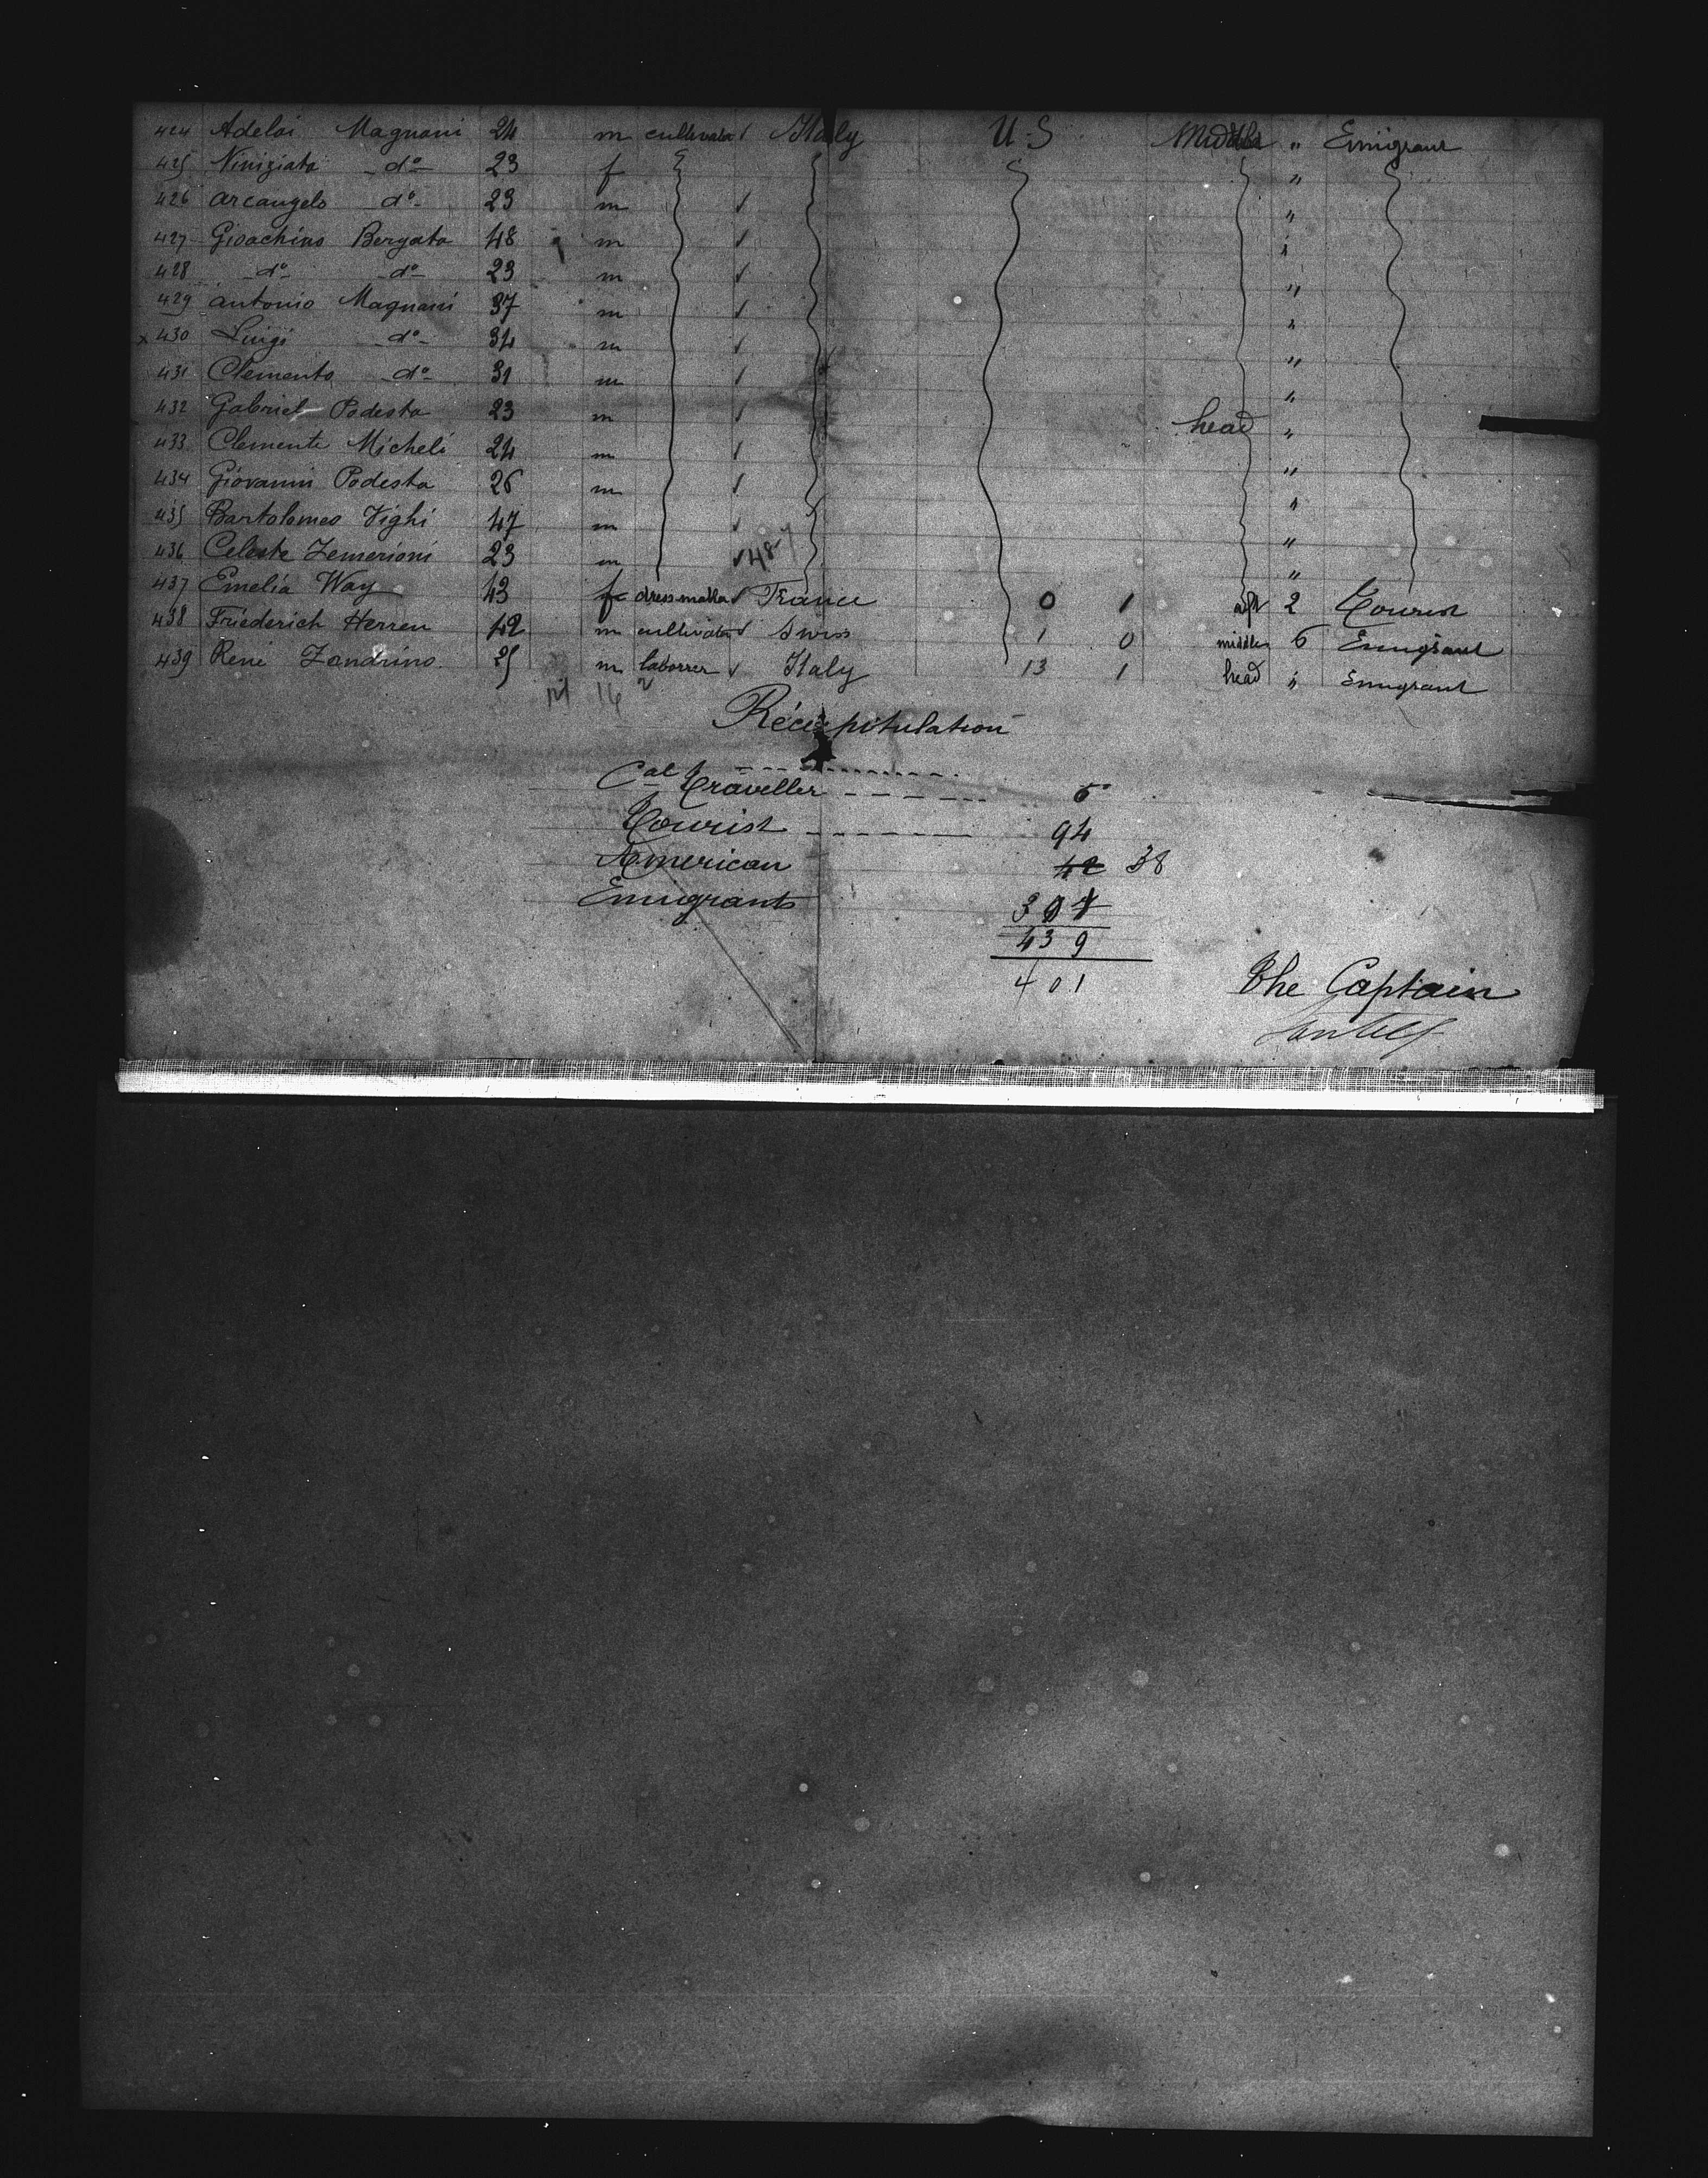 424 Adeloi Magnani 24 m cultivator ✓ Italy U-S Middle " Emigrant
425 Niniziata -do- 23 f "
426 arcangelo -do- 23 m ✓ "
427 Gioachino Bergato 48 m ✓ "
428 -do- -do- 23 m ✓ "
429 antonio Magnani 37 m ✓ "
x 430 Luigi -do- 34 m ✓ "
431 Clemento -do- 31 m ✓ "
432 Gabriel Podesta 23 m ✓ head "
433 Clemente Micheli 24 m ✓ "
434 Giovanni Podesta 26 m ✓ "
435 Bartolomeo Vighi 47 m ✓ "
436 Celeste Zemerioni 23 m ✓ 48-7 "
437 Emelia Way 43 f dressmaker ✓ France 0 1 aft 2 Tourist
438 Friederich Herren 42 m cultivator ✓ Swiss 1 0 middle 6 Emigrant
439 René Zandrino 25 m laborrer ✓ Italy 13 1 head " Emigrant
16 2
Récapitulation
Cal Traveller 5
Tourist 94
American 42 38
Emigrants 301
439
401
The Captain